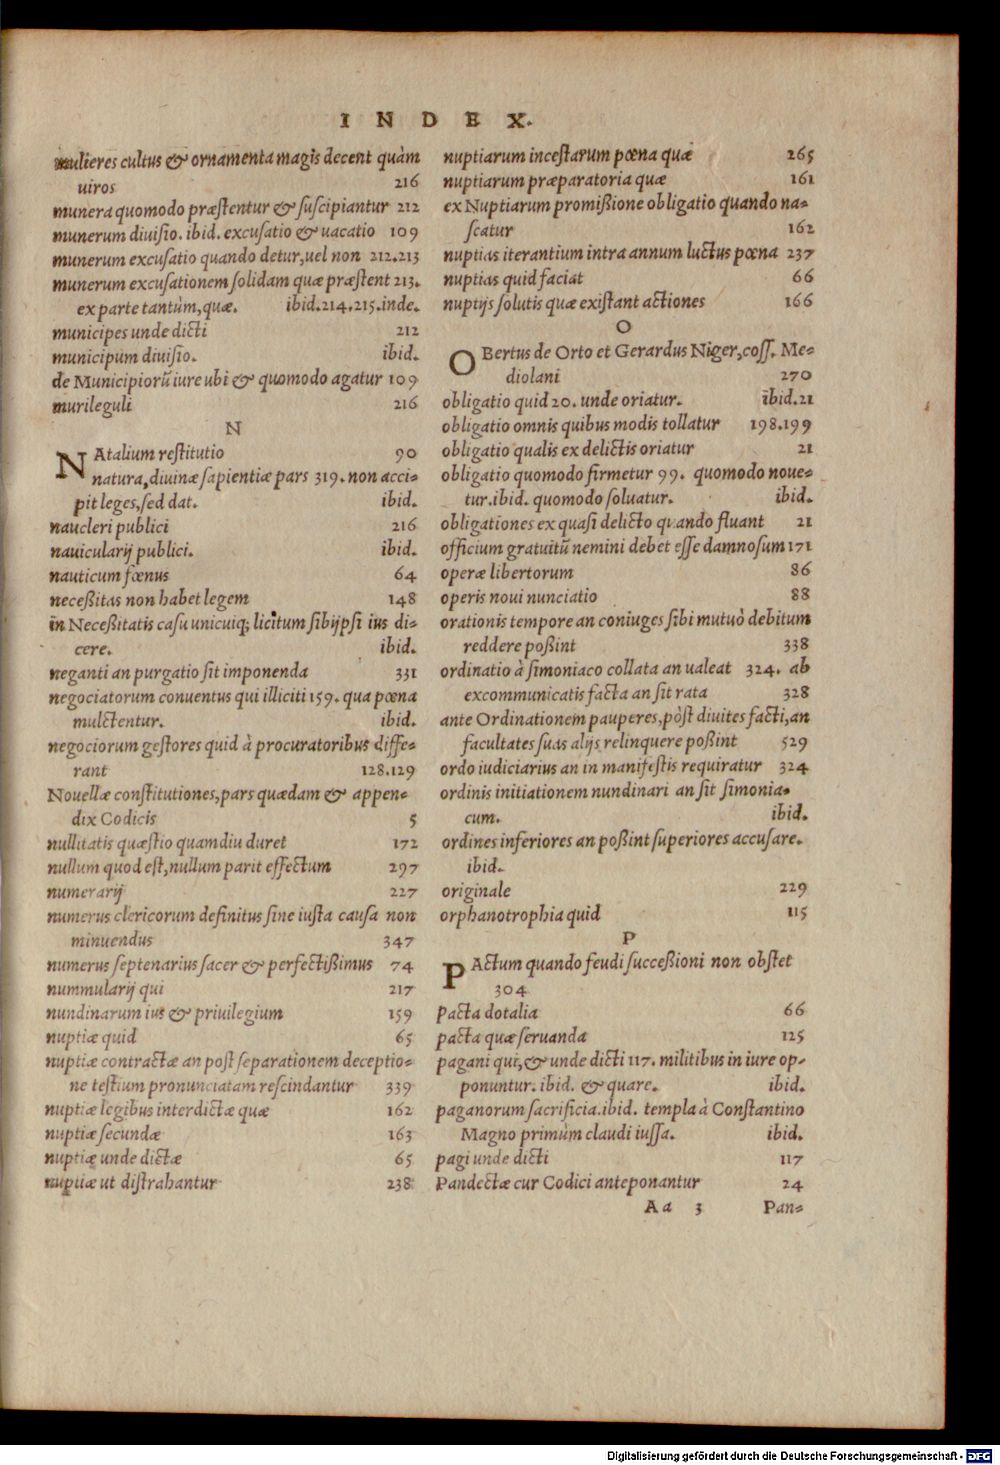 INDEX.
mulieres cultus & ornamenta magis decent quàm
uiros 216
munera quomodo præstentur & suscipiantur 212
munerum diuisio. ibid. excusatio & uacatio 109
munerum excusatio quando detur, uel non 212.213
munerum excusationem solidam quæ præstent 213.
ex parte tantùm, quæ. ibid.214.215.inde.
municipes unde dicti 212
municipum diuisio. ibid.
de Municipiorũ iure ubi & quomodo agatur 109
murileguli 216
N
NAtalium restitutio 90
natura, diuinæ sapientiæ pars 319. non acci-
pit leges, sed dat. ibid.
naucleri publici 216
nauicularij publici. ibid.
nauticum fœnus 64
neceßitas non habet legem 148
in Neceßitatis casu unicuiq; licitum sibijpsi ius di-
cere. ibid.
neganti an purgatio sit imponenda 331
negociatorum conuentus qui illiciti 159. qua pœna
mulctentur. ibid.
negociorum gestores quid à procuratoribus diffe-
rant 128.129
Nouellæ constitutiones, pars quædam & appen-
dix Codicis 5
nullitatis quæstio quamdiu duret 172
nullum quod est, nullum parit effectum 297
numerarij 227
numerus clericorum definitus sine iusta causa non
minuendus 347
numerus septenarius sacer & perfectißimus 74
nummularij qui 217
nundinarum ius & priuilegium 159
nuptiæ quid 65
nuptiæ contractæ an post separationem deceptio-
ne testium pronunciatam rescindantur 339
nuptiæ legibus interdictæ quæ 162
nuptiæ secundæ 163
nuptiæ unde dictæ 65
nuptiæ ut distrahantur 238
nuptiarum incestarum pœna quæ 265
nuptiarum præparatoria quæ 161
ex Nuptiarum promißione obligatio quando na-
scatur 162
nuptias iterantium intra annum luctus pœna 237
nuptias quid faciat 66
nuptijs solutis quæ existant actiones 166
O
OBertus de Orto et Gerardus Niger, coss. Me-
diolani 270
obligatio quid 20. unde oriatur. ibid.21
obligatio omnis quibus modis tollatur 198.199
obligatio qualis ex delictis oriatur 21
obligatio quomodo firmetur 99. quomodo noue-
tur. ibid. quomodo soluatur. ibid.
obligationes ex quasi delicto quando fluant 21
officium gratuitũ nemini debet esse damnosum 171
operæ libertorum 86
operis noui nunciatio 88
orationis tempore an coniuges sibi mutuò debitum
reddere poßint 338
ordinatio à simoniaco collata an ualeat 324. ab
excommunicatis facta an sit rata 328
ante Ordinationem pauperes, pòst diuites facti, an
facultates suas alijs relinquere poßint 529
ordo iudiciarius an in manifestis requiratur 324
ordinis initiationem nundinari an sit simonia-
cum. ibid.
ordines inferiores an poßint superiores accusare.
ibid.
originale 229
orphanotrophia quid 115
P
PActum quando feudi succeßioni non obstet
304
Pacta dotalia 66
pacta quæ seruanda 125
pagani qui, & unde dicti 117. militibus in iure op-
ponuntur. ibid. & quare. ibid.
paganorum sacrificia. ibid. templa à Constantino
Magno primùm claudi iussa. ibid.
pagi unde dicti 117
Pandectæ cur Codici anteponantur 24
Aa 3 Pan-
Digitalisierung gefördert durch die Deutsche Forschungsgemeinschaft - DFG